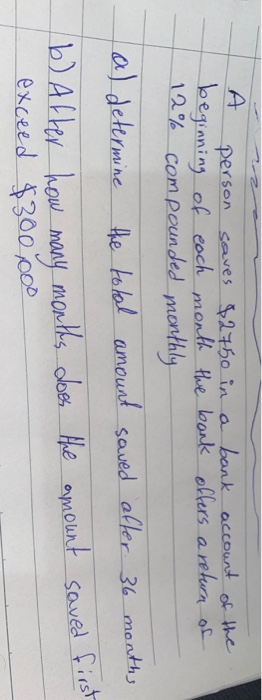 A person saves $2750 in a bank account at the
beginning of each month the bank offers a return of
12% compounded monthly
a) determine the total amount saved after 36 months
b) After how many months does the amount saved first
exceed $300 000